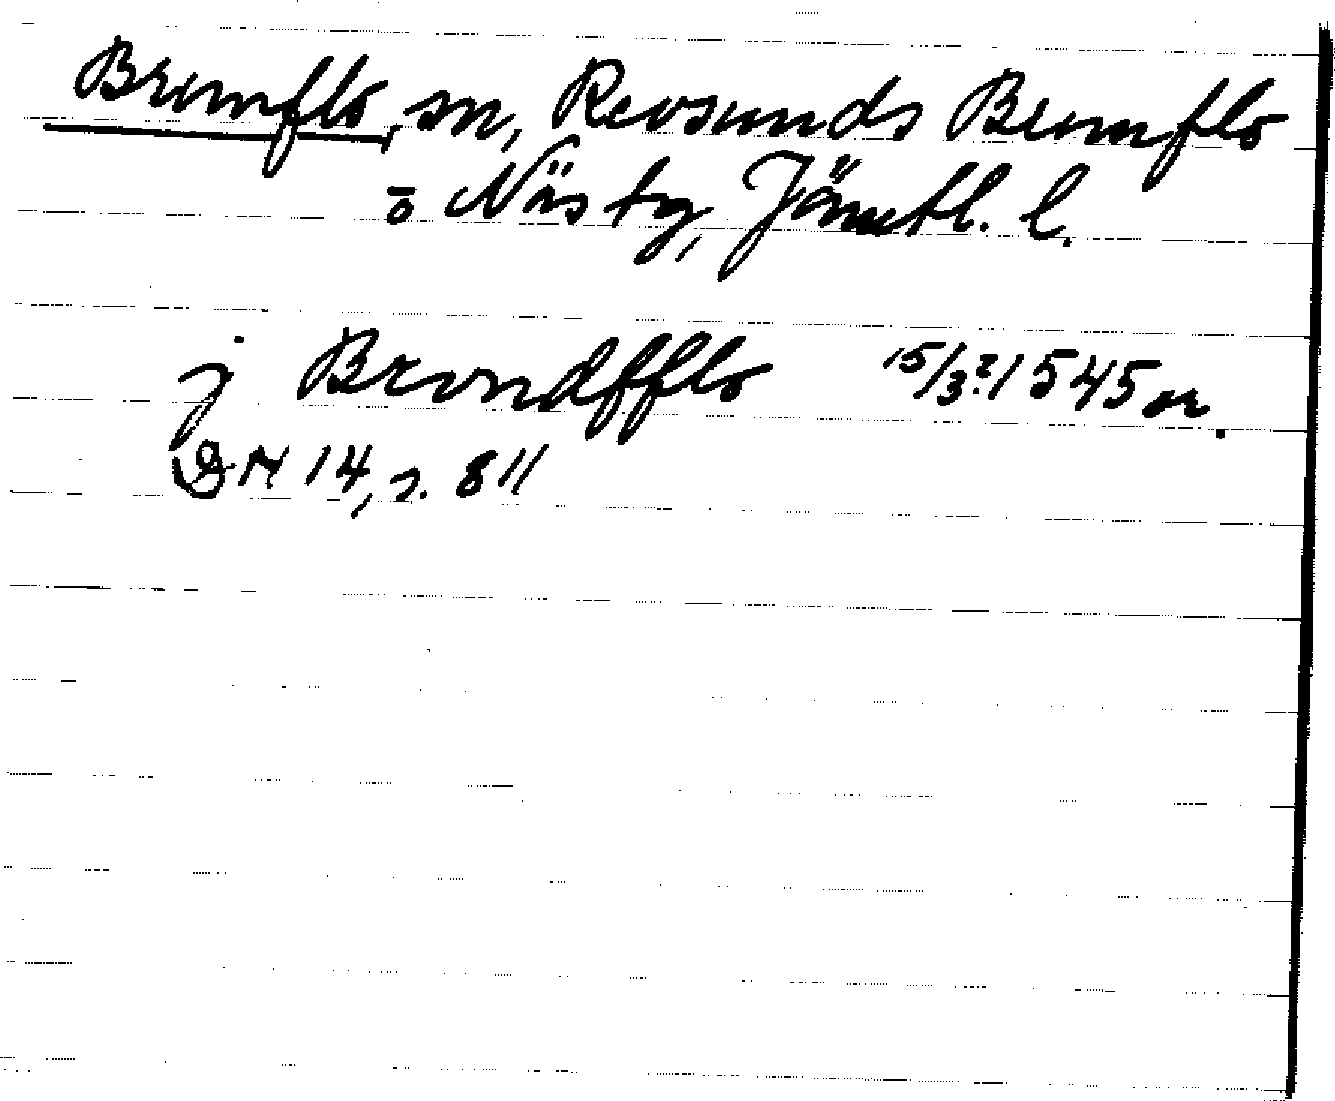 Brunflo, sn, Revsunds Brunflo
o Näs tg, Jämtl. l.
j Brvndfflo 15/3? 1545 or.
DN 14, s. 811